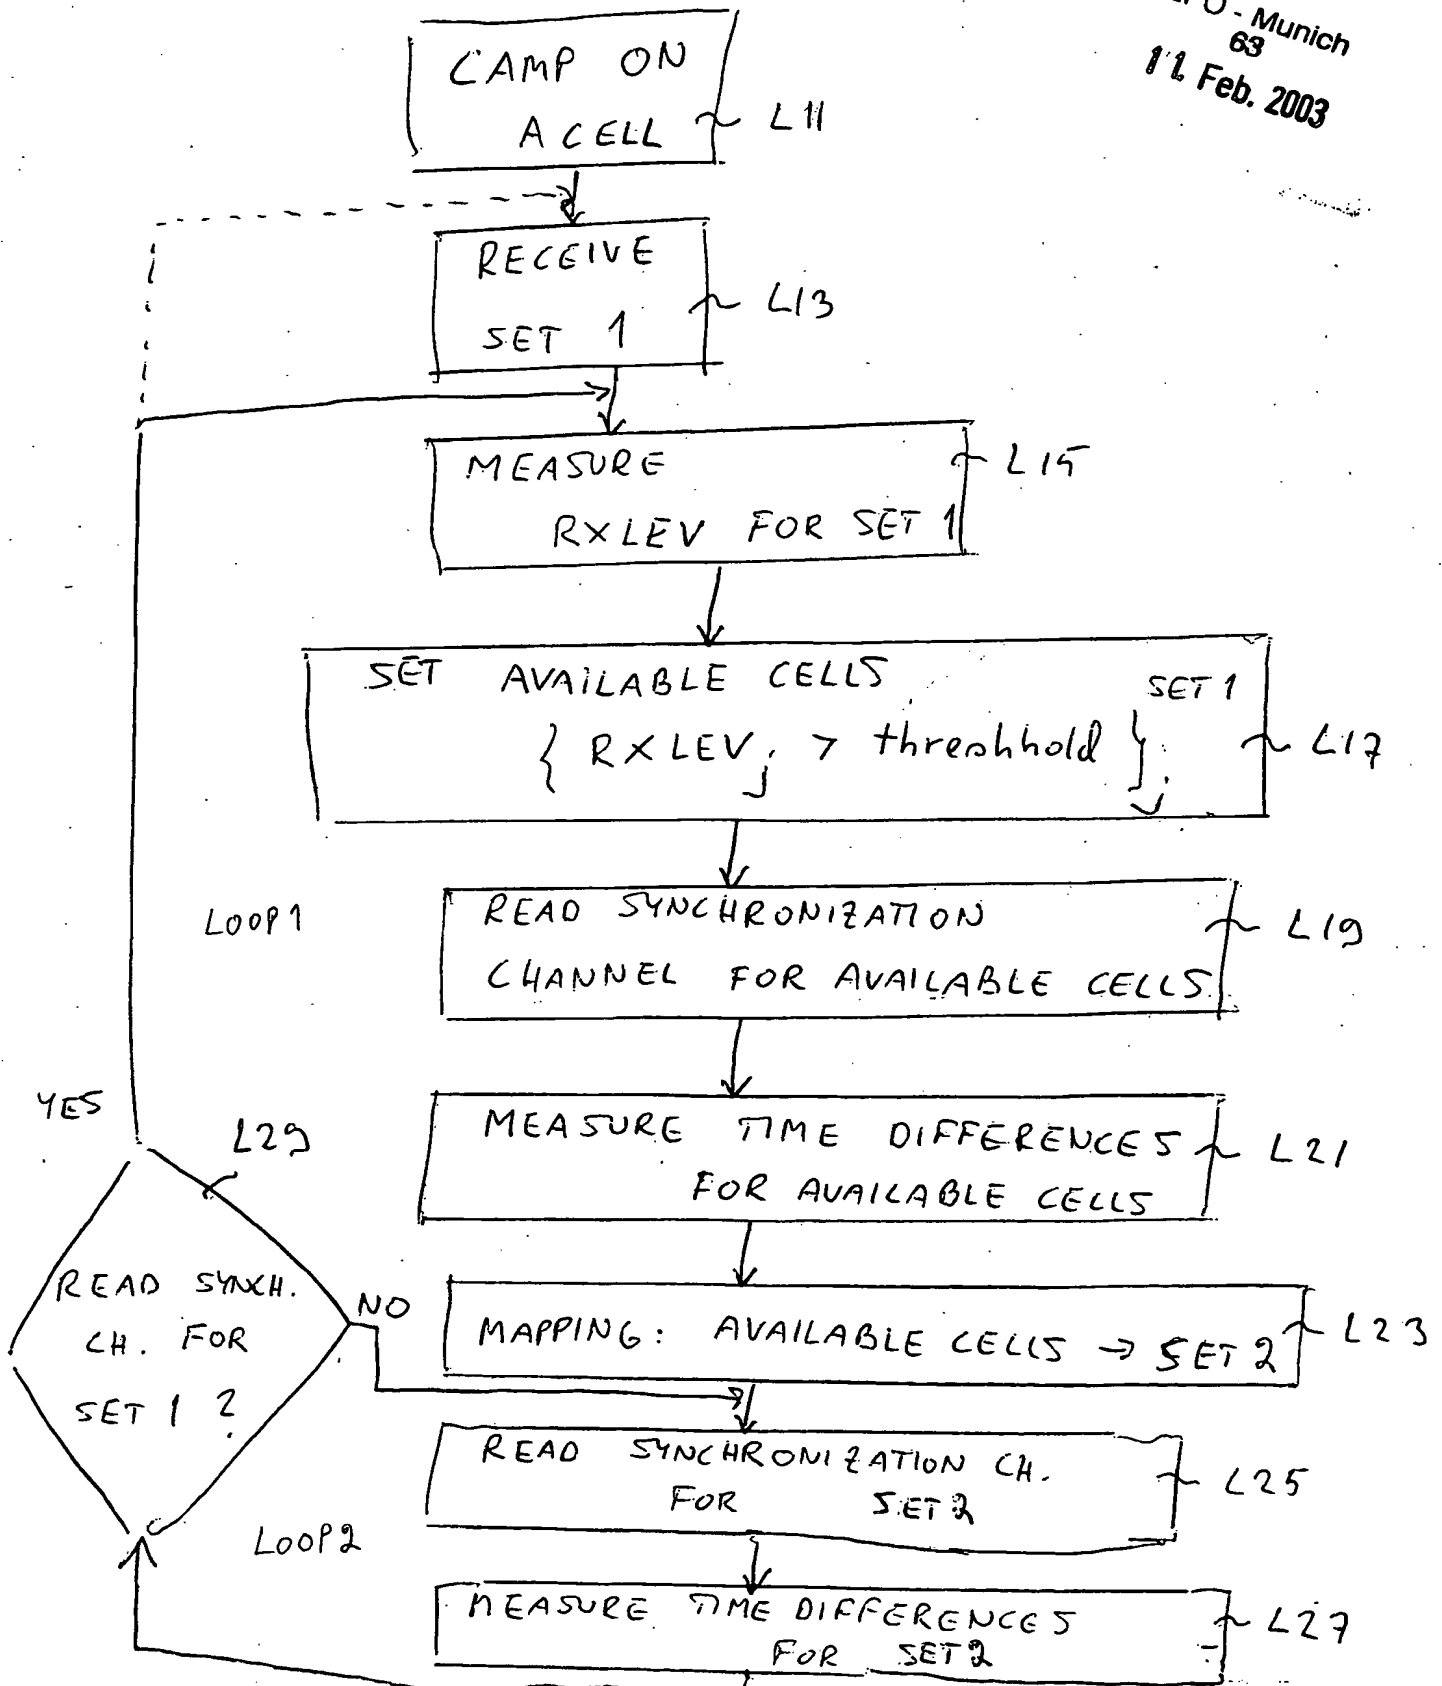 - Munich
63
11. Feb. 2003
CAMP ON
A CELL
L11
RECEIVE
SET 1
L13
MEASURE
RXLEV FOR SET 1
L15
SET AVAILABLE CELLS
SET 1
{ RXLEVj > threshhold }j
L17
LOOP1
READ SYNCHRONIZATION
CHANNEL FOR AVAILABLE CELLS
L19
YES
L29
MEASURE TIME DIFFERENCES
FOR AVAILABLE CELLS
L21
READ SYNCH.
CH. FOR
SET 1 ?
NO
MAPPING: AVAILABLE CELLS → SET 2
L23
READ SYNCHRONIZATION CH.
FOR SET2
L25
LOOP2
MEASURE TIME DIFFERENCES
FOR SET2
L27